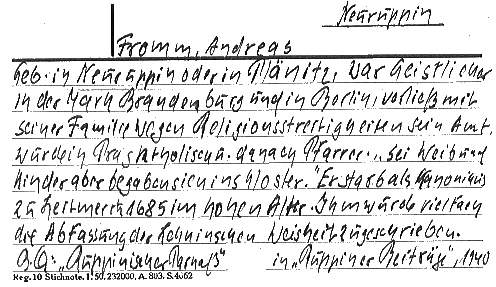 Neuruppin
Fromm, Andreas
Geb. in Neuruppin oder in Plänitz, war Geistlicher
in der Mark Brandenburg und in Berlin, verließ mit
seiner Familie wegen Religionsstreitigkeiten sein Amt,
wurde in Prag katholisch u. danach Pfarrer. „Sei Weib und
Kinder aber begaben sich ins Kloster." Er starb als Kanonikus
zu Leitmeritz 1685 im hohen Alter. Ihm wurde vielfach
die Abfassung der Lehninschen Weisheit zugeschrieben.
„Ruppinischer Parnaß" in „Ruppiner Beiträge", 1940
Reg. 10 Stichnote. 1. 50. 232000. A. 803. S. 4662